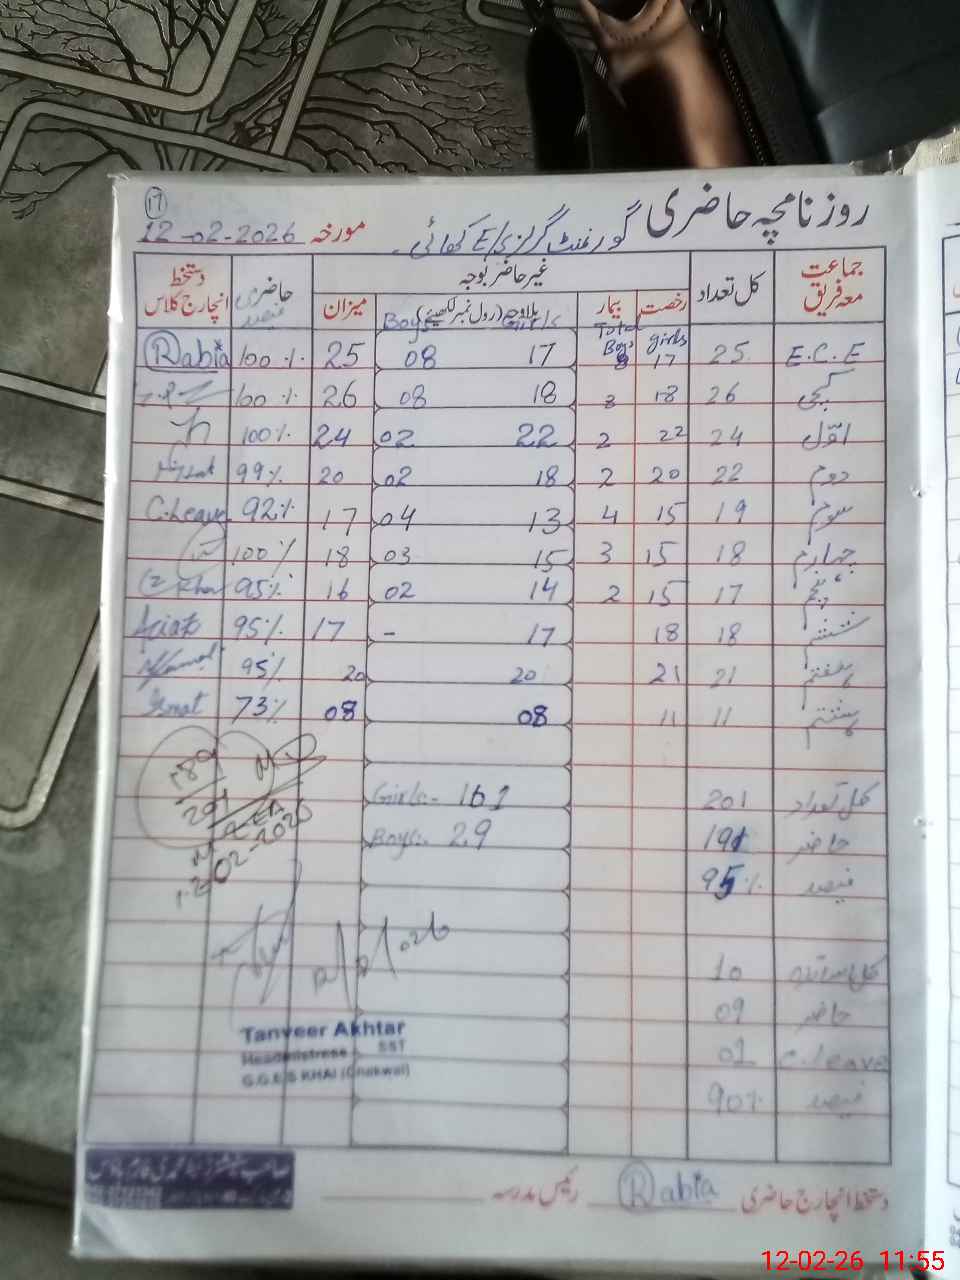 17
روزنامچہ حاضری گورنمنٹ گرلز ای/E کھائی۔
مورخہ 12-02-2026
جماعت معہ فریق کل تعداد غیر حاضر بوجہ حاضری فیصد دستخط انچارج کلاس
رخصت بیمار بلاوجہ (رول نمبر لکھیئے) میزان
Total Boys girls Boys Girls
E.C.E 25 17 8 17 08 25 100 % Rabia
کچی 26 18 8 18 08 26 100 %
اوّل 24 22 2 22 02 24 100%
دوم 22 20 2 18 02 20 99%
سوم 19 15 4 13 04 17 92% C.Leave
چہارم 18 15 3 15 03 18 100 %
پنجم 17 15 2 14 02 16 95%
ششم 18 18 17 - 17 95%
ہفتم 21 21 20 20 95%
ہشتم 11 11 08 08 73%
کل تعداد 201 Girls:- 161
حاضر 191 Boys:- 29
فیصد 95%
189
201
12-02-2026
کل اساتذہ 10
حاضر 09
C.leave 01
فیصد 90%
Tanveer Akhtar
Headmistress SST
G.G.E.S KHAI (Chakwal)
دستخط انچارج حاضری Rabia رئیس مدرسہ
12-02-26 11:55